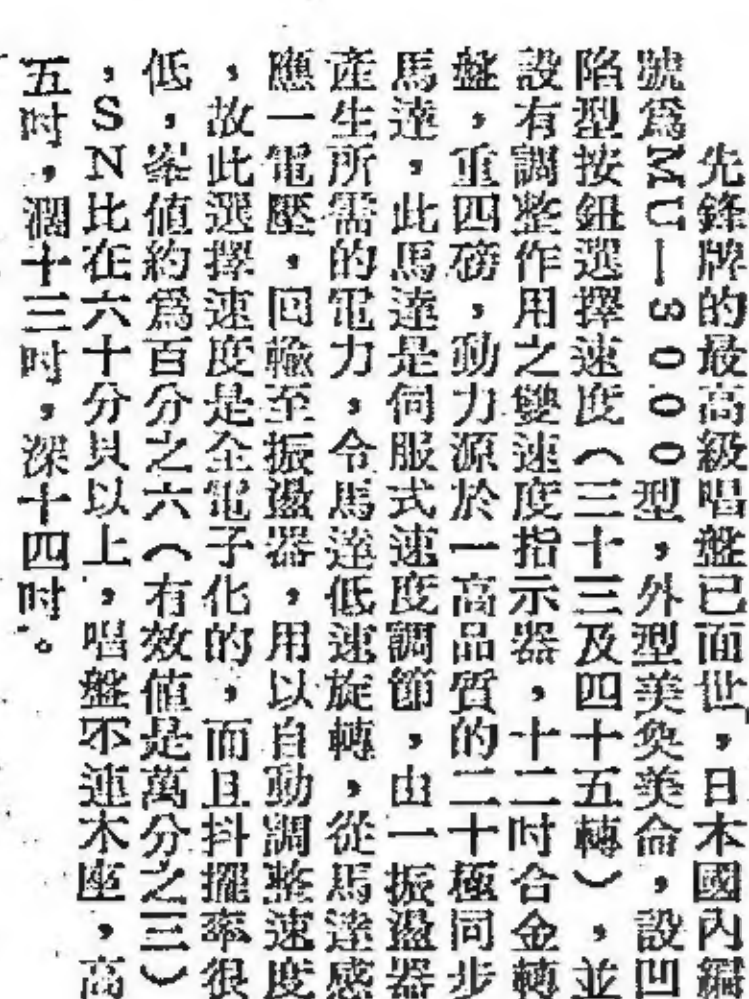 先鋒牌的最高級唱盤已面世，日本國內編
號爲MU—3000型，外型美奐美侖，設凹
陷型按鈕選擇速度（三十三及四十五轉），並
設有調整作用之變速度指示器，十二吋合金轉
盤，重四磅，動力源於一高品質的二十極同步
馬達，此馬達是伺服式速度調節，由一振盪器
產生所需的電力，令馬達低速旋轉，從馬達感
應一電壓，回輸至振盪器，用以自動調整速度
，故此選擇速度是全電子化的，而且抖擺率很
低，峯值約爲百分之六（有效值是萬分之三）
，SN比在六十分貝以上，唱盤不連木座，高
五吋，濶十三吋，深十四吋。